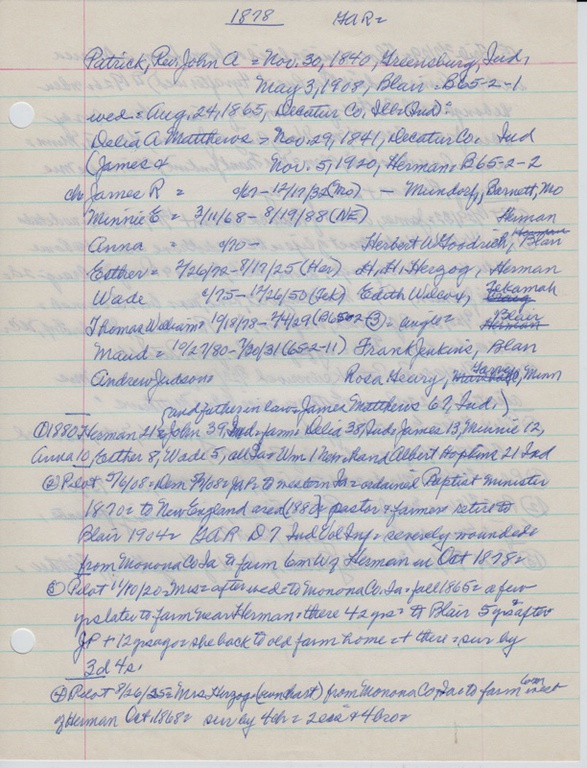 1878 GAR=
Patrick, Rev. John A = Nov. 30, 1840, Greensburg, Ind,
May 3, 1908, Blair = B65-2-1
wed = Aug. 24, 1865, Decatur Co, Ills (Ind) =
Delia A Matthews = Nov. 29, 1841, Decatur Co. Ind
(James & Nov. 5, 1920, Herman, B65-2-2
ch = James R = /67 - 12/17/32 (Mo) - Mundorf, Barnett, Mo
Minnie E = 3/11/68 - 8/19/88 (NE) Herman
Anna = /70 - Herbert W Goodrich, Blair
Esther = 2/26/72 - 8/17/25 (Her) H. H. Herzog, Herman
Wade /75 - 12/26/50 (Tek) Edith Wilcox, Tekamah
Thomas William = 10/18/78 - 2/4/29 (B65-2-3) = single = Blair
Maud = 10/27/80 - 7/30/31 (65-2-11) Frank Jenkins, Blair
Andrew Judson = Rosa Heary, Minn
(and father in law = James Matthews 67, Ind,)
① 1880 Herman 21 & John 39, Ind, farm = Delia 38, Ind, James 13, Minnie 12,
Anna 10, Esther 8, Wade 5, all Ia = Wm 1 Neb = hand Albert Hopkins 21 Ind
② Pilot 5/6/08 = Dem 5/7/08 = JaP = to western Ia = ordained Baptist minister
1870 = to New England area (1880) = pastor & farmer = retired to
Blair 1904 = GAR D 7 Ind Vol Inf = severely wounded =
from Monona Co Ia to farm 6 m W of Herman in Oct 1878 =
③ Pilot 11/10/20 = Mrs = after wed to Monona Co. Ia = fall 1865 = a few
yrs later to farm near Herman = there 42 yrs = to Blair 5 yrs after
JP + 12 yrs ago = she back to old farm home & there = sur by
3 d 4 s.
④ Pilot 8/26/25 = Mrs Herzog from Monona Co, Ia to farm 6 m west
of Herman Oct 1868 = sur by 4 ch = 2 sis & 4 bro =